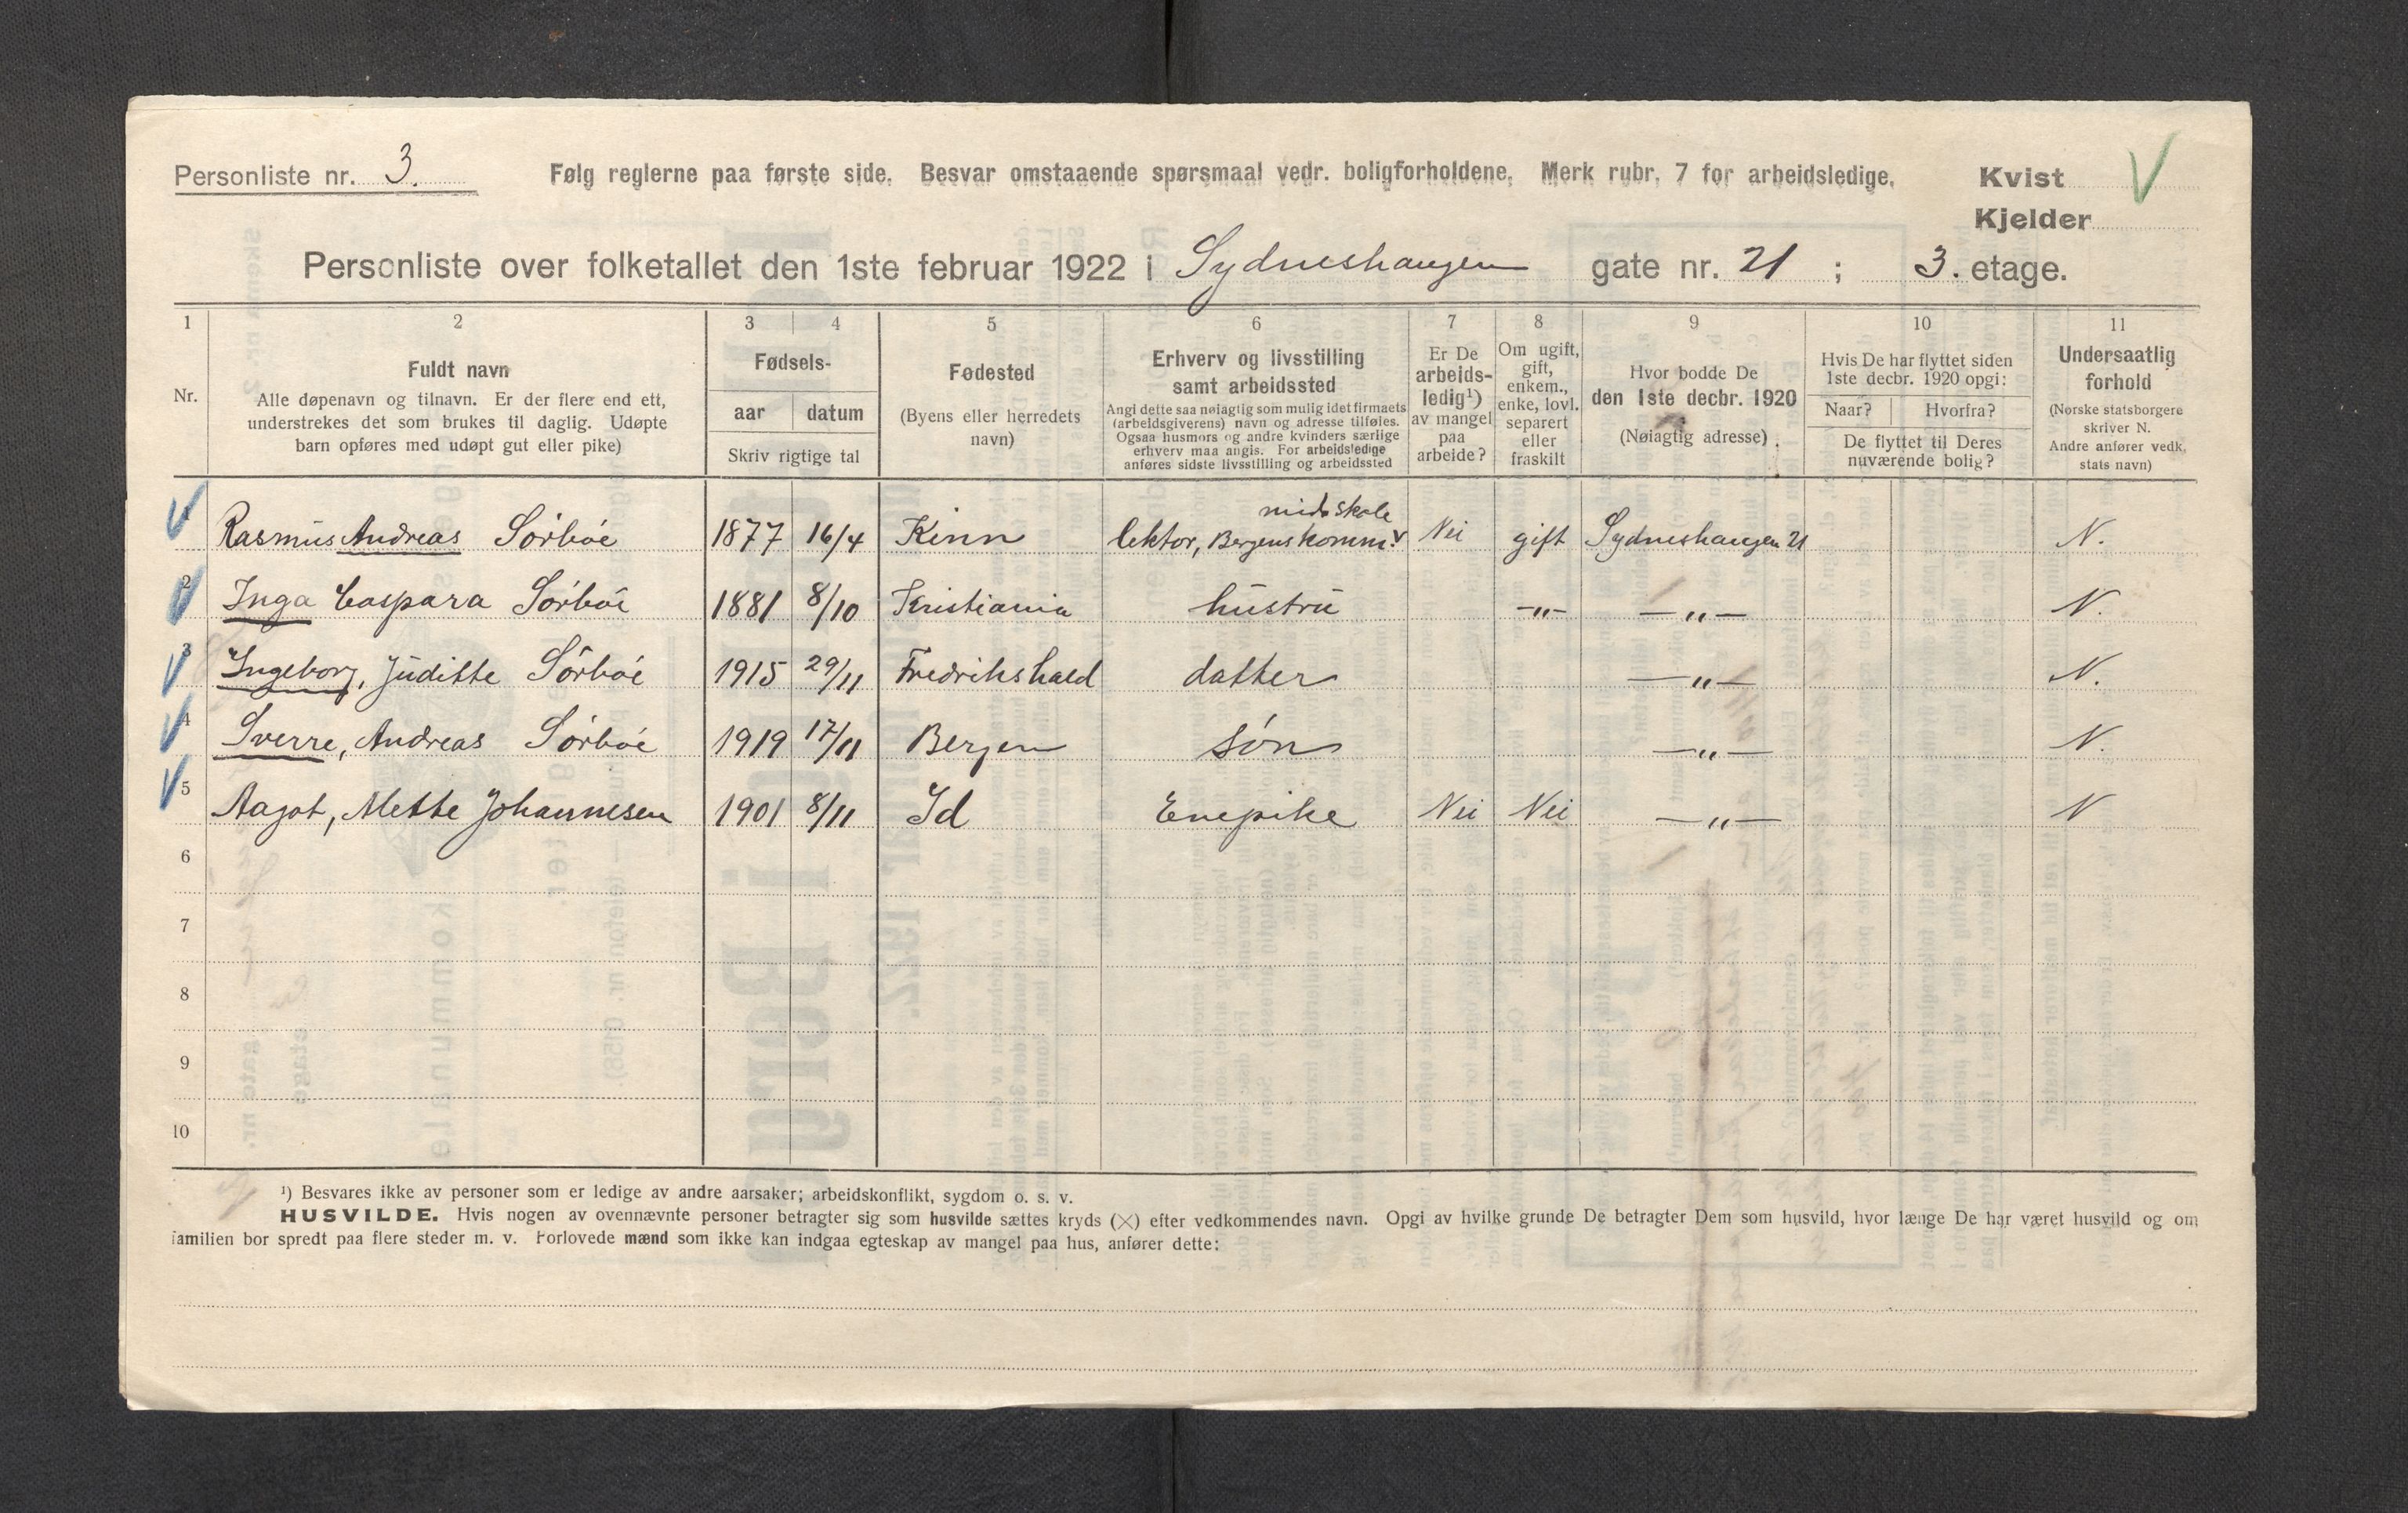 Personliste nr. 3.
Følg reglerne paa første side. Besvar omstaaende spørsmaal vedr. boligforholdene. Merk rubr. 7 for arbeidsledige.
Kvist
Kjelder
Personliste over folketallet den 1ste februar 1922 i Sydneshaugen gate nr. 21 ; 3. etage.
1 2 3 4 5 6 7 8 9 10 11
Nr.
Fuldt navn
Alle døpenavn og tilnavn. Er der flere end ett,
understrekes det som brukes til daglig. Udøpte
barn opføres med udøpt gut eller pike)
Fødsels-
aar datum
Skriv rigtige tal
Fødested
(Byens eller herredets
navn)
Erhverv og livsstilling
samt arbeidssted
Angi dette saa nøiagtig som mulig idet firmaets
(arbeidsgiverens) navn og adresse tilføies.
Ogsaa husmors og andre kvinders særlige
erhverv maa angis. For arbeidsledige
anføres sidste livsstilling og arbeidssted
Er De
arbeids-
ledig¹)
av mangel
paa
arbeide?
Om ugift,
gift,
enkem.,
enke, lovl.
separert
eller
fraskilt
Hvor bodde De
den 1ste decbr. 1920
(Nøiagtig adresse)
Hvis De har flyttet siden
1ste decbr. 1920 opgi:
Naar? Hvorfra?
De flyttet til Deres
nuværende bolig?
Undersaatlig
forhold
(Norske statsborgere
skriver N.
Andre anfører vedk.
stats navn)
midskole
Rasmus Andreas Sörböe 1877 16/4 Kinn lektor, Bergens komm. Nei gift Sydneshaugen 21 N.
2 Inga Caspara Sörböe 1881 8/10 Kristiania hustru —„— —„— N.
3 Ingeborg, Juditte Sörböe 1915 29/11 Fredrikshald datter —„— N.
4 Sverre, Andreas Sörböe 1919 17/11 Bergen sön —„— N.
5 Aagot, Mette Johannesen 1901 8/11 Id Enepike Nei Nei —„— N
6
7
8
9
10
¹) Besvares ikke av personer som er ledige av andre aarsaker; arbeidskonflikt, sygdom o. s. v.
HUSVILDE. Hvis nogen av ovennævnte personer betragter sig som husvilde sættes kryds (×) efter vedkommendes navn. Opgi av hvilke grunde De betragter Dem som husvild, hvor længe De har været husvild og om
familien bor spredt paa flere steder m. v. Forlovede mænd som ikke kan indgaa egteskap av mangel paa hus, anfører dette: